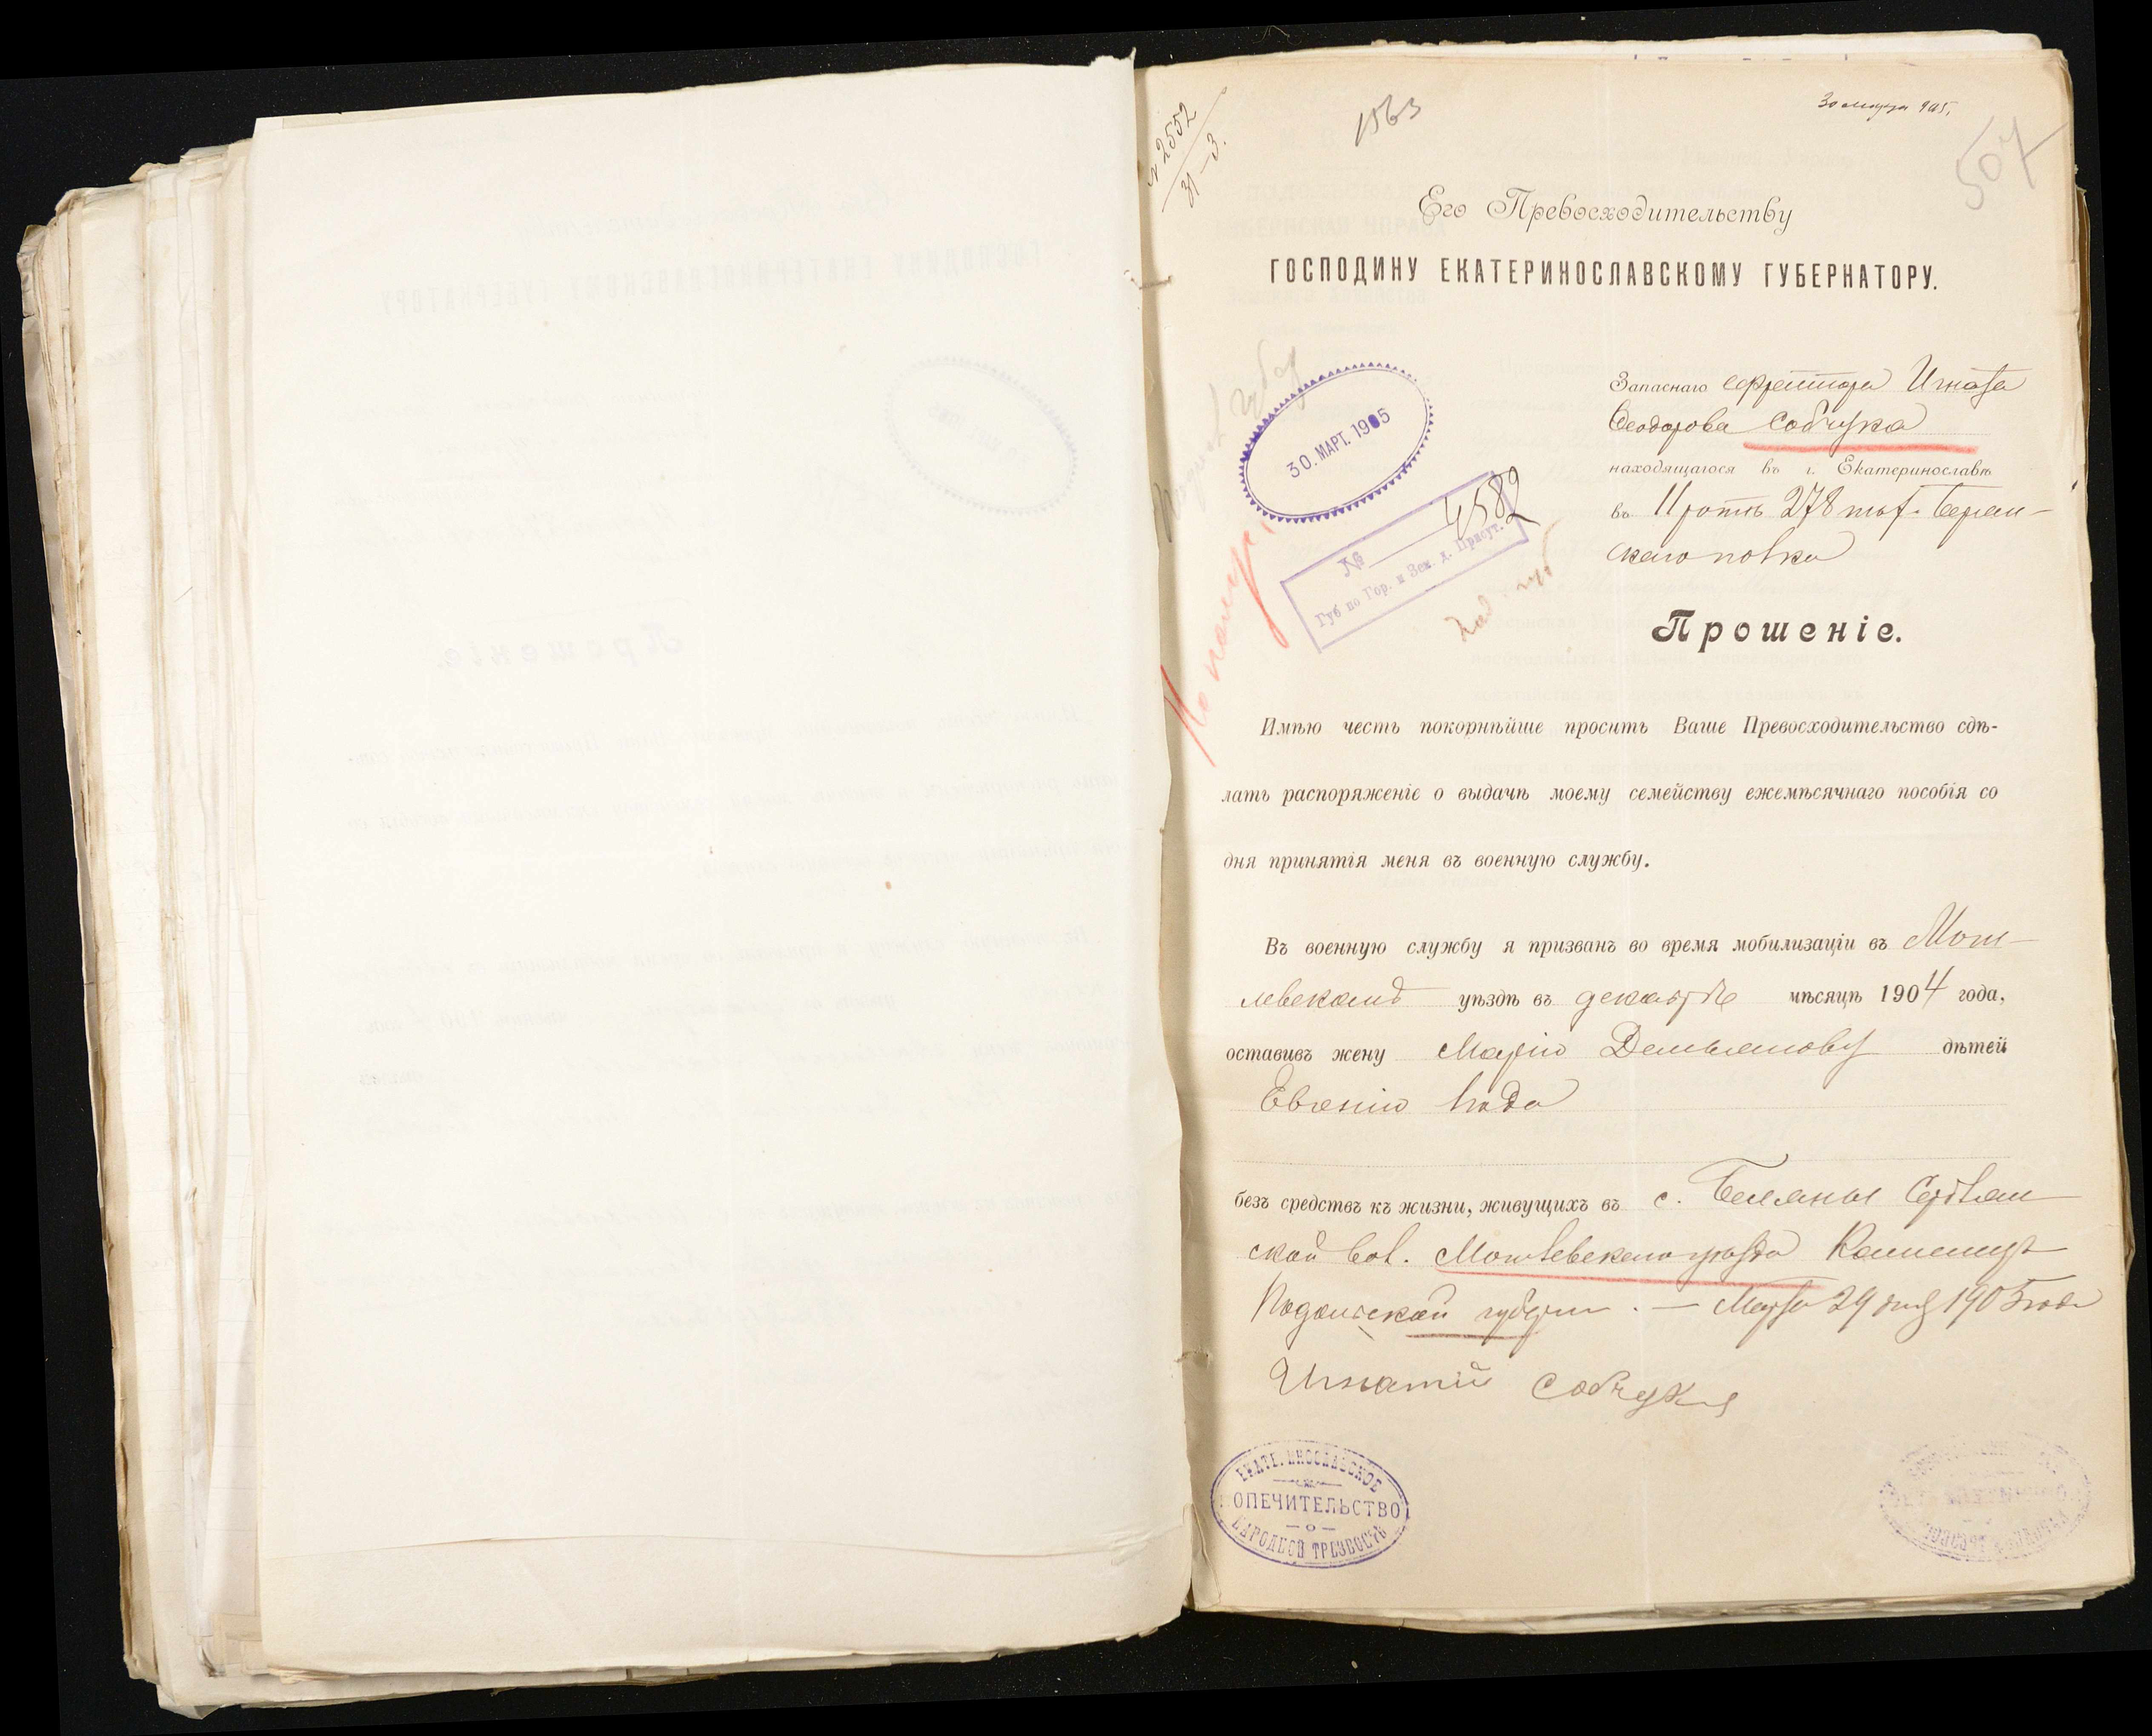 № 2552
31–3.
1563
30 марта 905.
507
Его Превосходительству
ГОСПОДИНУ ЕКАТЕРИНОСЛАВСКОМУ ГУБЕРНАТОРУ.
30. МАРТ. 1905
№ 4582
Губ по Гор. и Зем. д. Присут.
Запаснаго ефрейтора Игната
Феодорова Собчука
находящагося въ г. Екатеринославѣ
въ 11 ротѣ 278
скаго полка
Прошеніе.
Имѣю честь покорнѣйше просить Ваше Превосходительство сдѣ-
лать распоряженіе о выдачѣ моему семейству ежемѣсячнаго пособія со
дня принятія меня въ военную службу.
Въ военную службу я призванъ во время мобилизаціи въ Моги-
левскомъ уѣздѣ въ декабрѣ мѣсяцѣ 1904 года,
оставивъ жену Марію Демьянову дѣтей
Евгенію
безъ средствъ къ жизни, живущихъ въ с.
ской вол. Могилевскаго уѣзда
Подольской губерніи. — Марта 29 дня 1905 года
Игнатий Собчукъ
ЕКАТЕРИНОСЛАВСКОЕ
ПОПЕЧИТЕЛЬСТВО
О
НАРОДНОЙ ТРЕЗВОСТИ